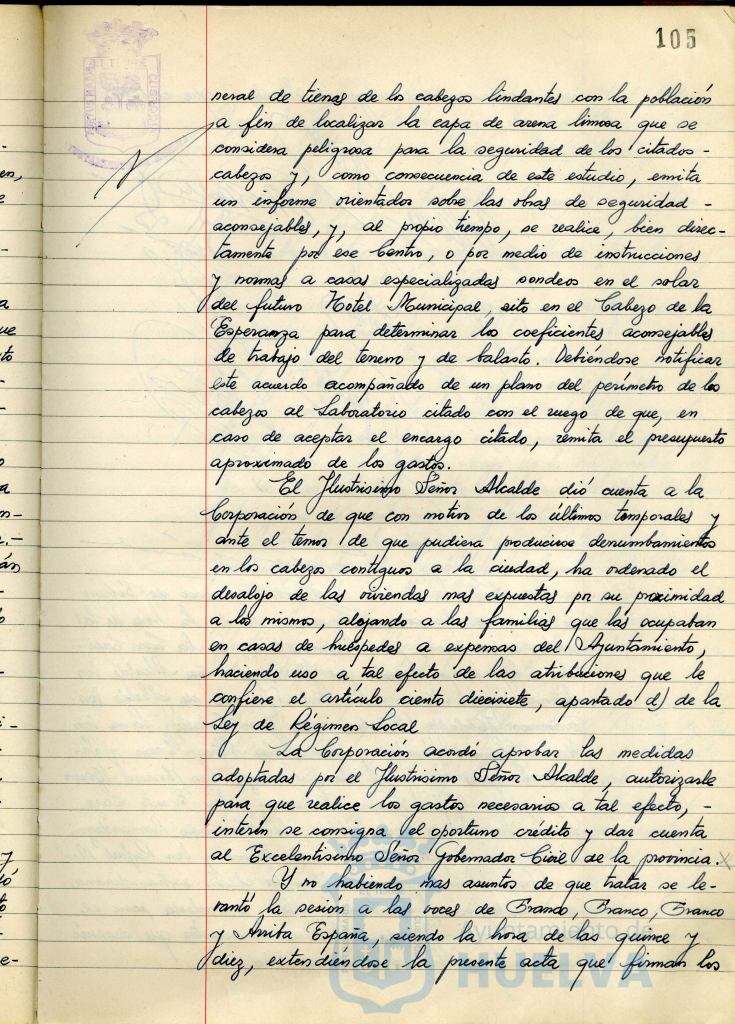 105
neral de tierras de los cabezos lindantes con la población
a fin de localizar la capa de arena limosa que se
considera peligrosa para la seguridad de los citados -
cabezos y, como consecuencia de este estudio, emita
un informe orientados sobre las obras de seguridad -
aconsejables, y, al propio tiempo, se realice, bien direc-
tamente por ese Centro, o por medio de instrucciones
y normas a casas especializadas sondeos en el solar
del futuro Hotel Municipal, sito en el Cabezo de la
Esperanza para determinar los coeficientes aconsejables
de trabajo del terreno y de balasto. Debiéndose notificar
este acuerdo acompañado de un plano del perímetro de los
cabezos al Laboratorio citado con el ruego de que, en
caso de aceptar el encargo citado, remita el presupuesto
aproximado de los gastos.
El Ilustrisimo Señor Alcalde dió cuenta a la
Corporación de que con motivo de los últimos temporales y
ante el temor de que pudiera producirse derrumbamientos
en los cabezos contiguos a la ciudad, ha ordenado el
desalojo de las viviendas mas expuestas por su proximidad
a los mismos, alojando a las familias que las ocupaban
en casas de huéspedes a expensas del Ayuntamiento,
haciendo uso a tal efecto de las atribuciones que le
confiere el artículo ciento diecisiete, apartado d) de la
Ley de Régimen Local
La Corporación acordó aprobar las medidas
adoptadas por el Ilustrisimo Señor Alcalde, autorizarle
para que realice los gastos necesarios a tal efecto, -
interin se consigna el oportuno crédito y dar cuenta
al Excelentisimo Señor Gobernador Civil de la provincia.
Y no habiendo mas asuntos de que tratar se le-
vantó la sesión a las voces de Franco, Franco, Franco
y Arriba España, siendo la hora de las quince y
diez, extendiéndose la presente acta que firman los
Ayuntamiento de
HUELVA